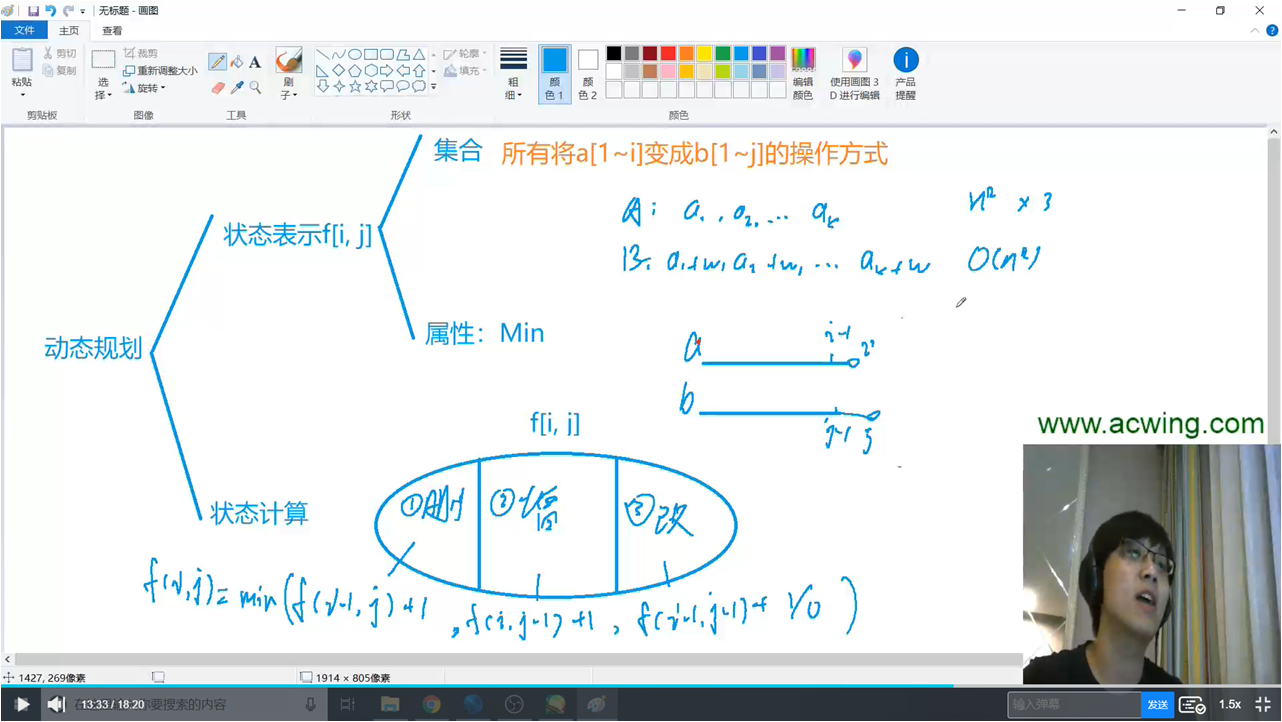 无标题 - 画图
文件 主页 查看
粘贴 剪切 复制
选择 裁剪 重新调整大小 旋转
A
刷子
轮廓 填充
粗细
颜色 1
颜色 2
编辑颜色
使用画图 3D 进行编辑
产品提醒
剪贴板 图像 工具 形状 颜色
集合 所有将a[1~i]变成b[1~j]的操作方式
A: a₁, a₂, ... aₖ n² × 3
状态表示f[i, j]
B: a₁+w, a₂+w, ... aₖ+w O(n²)
属性：Min
动态规划
a i-1 i
b j-1 j
f[i, j]
www.acwing.com
①删 ②增 ③改
状态计算
f(i,j)= min(f(i-1, j)+1, f(i, j-1)+1, f(i-1, j-1)+ 1/0 )
1427, 269像素 1914 × 805像素
13:33 / 18:20
要搜索的内容
输入弹幕 发送 1.5x